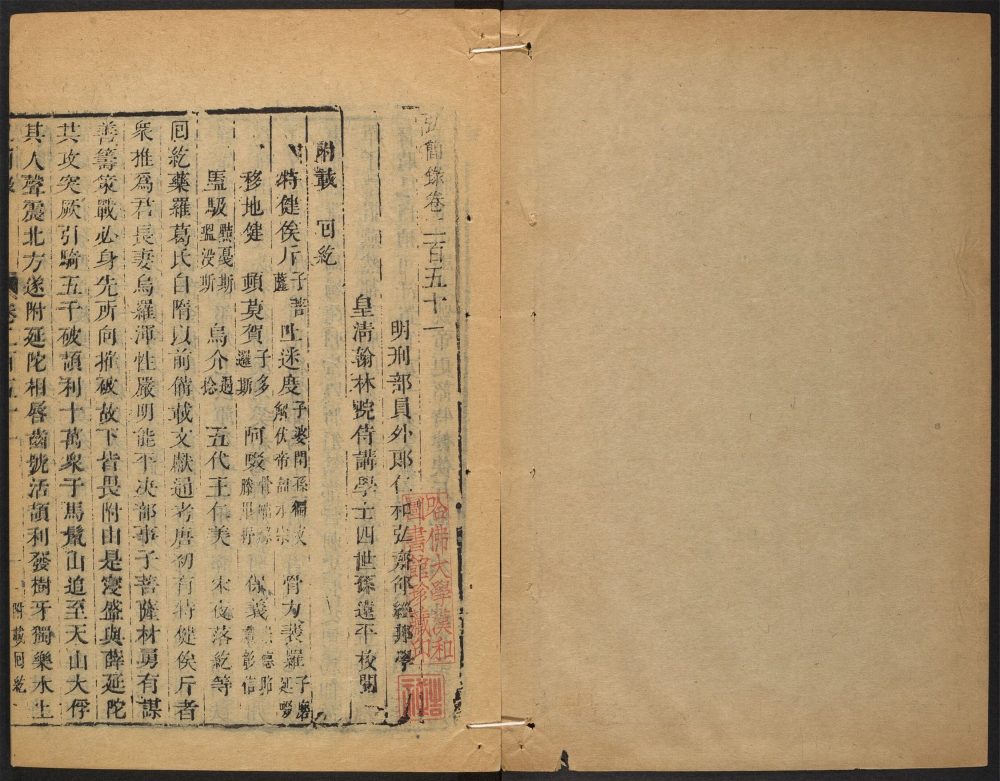 弘簡錄卷二百五十一
明刑部員外郎仁和弘齋邵經邦學
皇淸翰林院侍講學士四世孫遠平校閱
附載 回紇
特健俟斤子菩薩 吐迷度子婆閏孫獨 解伏帝 骨力裴羅子磨延啜
移地健 頓莫賀子多邏斯 阿啜 保義
㬰馺 烏介 五代王仁美 宋夜落紇等
回紇藥羅葛氏自隋以前備載文獻通考唐初有特健俟斤者
衆推爲君長妻烏羅渾性嚴明能平决部事子菩薩材勇有謀
善籌策戰必身先所向摧破故下皆畏附由是寖盛與薛延陀
共攻突厥引騎五千破頡利十萬衆于馬鬣山追至天山大俘
其人聲震北方遂附延陀相唇齒號活頡利發樹牙獨樂水上
附載回紇
哈佛大學漢和
圖書館珍藏印